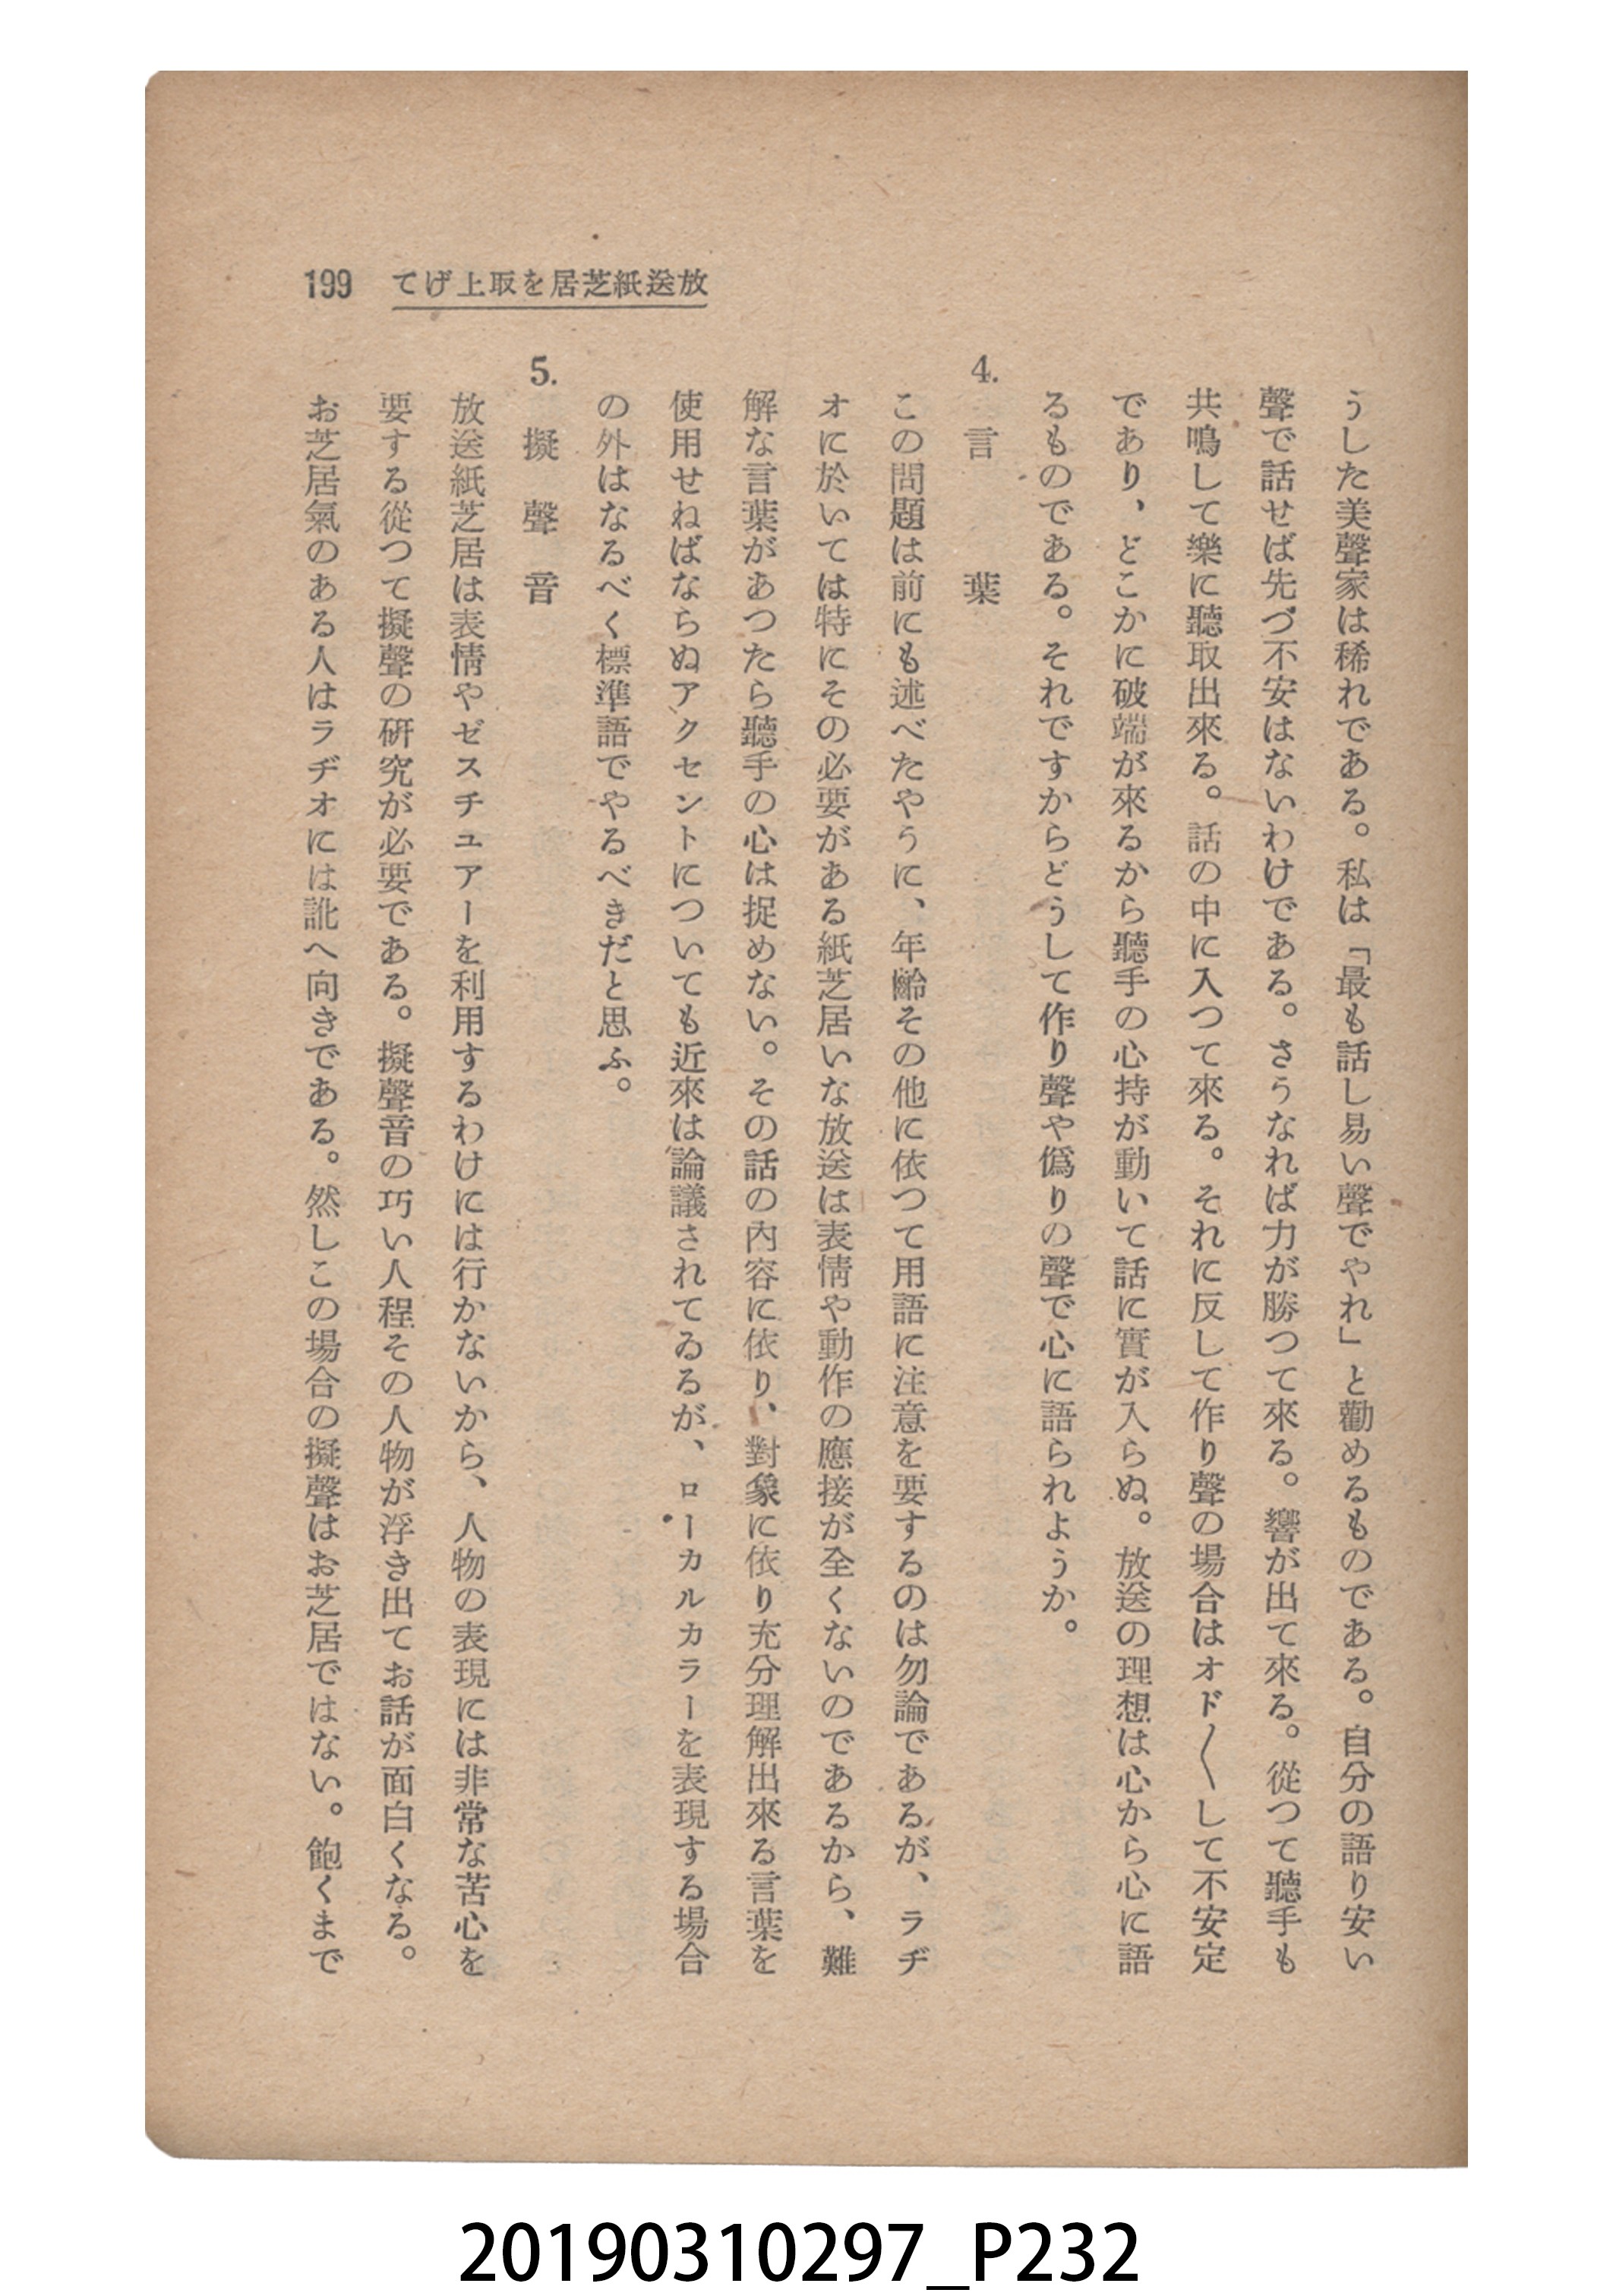 放送紙芝居を取上げて 199
うした美聲家は稀れである。私は「最も話し易い聲でやれ」と勸めるものである。自分の語り安い
聲で話せば先づ不安はないわけである。さうなれば力が勝つて來る。響が出て來る。從つて聽手も
共鳴して樂に聽取出來る。話の中に入つて來る。それに反して作り聲の場合はオド〱して不安定
であり，どこかに破端が來るから聽手の心持が動いて話に實が入らぬ。放送の理想は心から心に語
るものである。それですからどうして作り聲や僞りの聲で心に語られようか。
4. 言葉
この問題は前にも述べたやうに、年齡その他に依つて用語に注意を要するのは勿論であるが、ラヂ
オに於いては特にその必要がある紙芝居いな放送は表情や動作の應接が全くないのであるから、難
解な言葉があつたら聽手の心は捉めない。その話の內容に依り、對象に依り充分理解出來る言葉を
使用せねばならぬアクセントについても近來は論議されてゐるが、ローカルカラーを表現する場合
の外はなるべく標準語でやるべきだと思ふ。
5. 擬聲音
放送紙芝居は表情やゼスチユアーを利用するわけには行かないから、人物の表現には非常な苦心を
要する從つて擬聲の硏究が必要である。擬聲音の巧い人程その人物が浮き出てお話が面白くなる。
お芝居氣のある人はラヂオには訛へ向きである。然しこの場合の擬聲はお芝居ではない。飽くまで
20190310297_P232